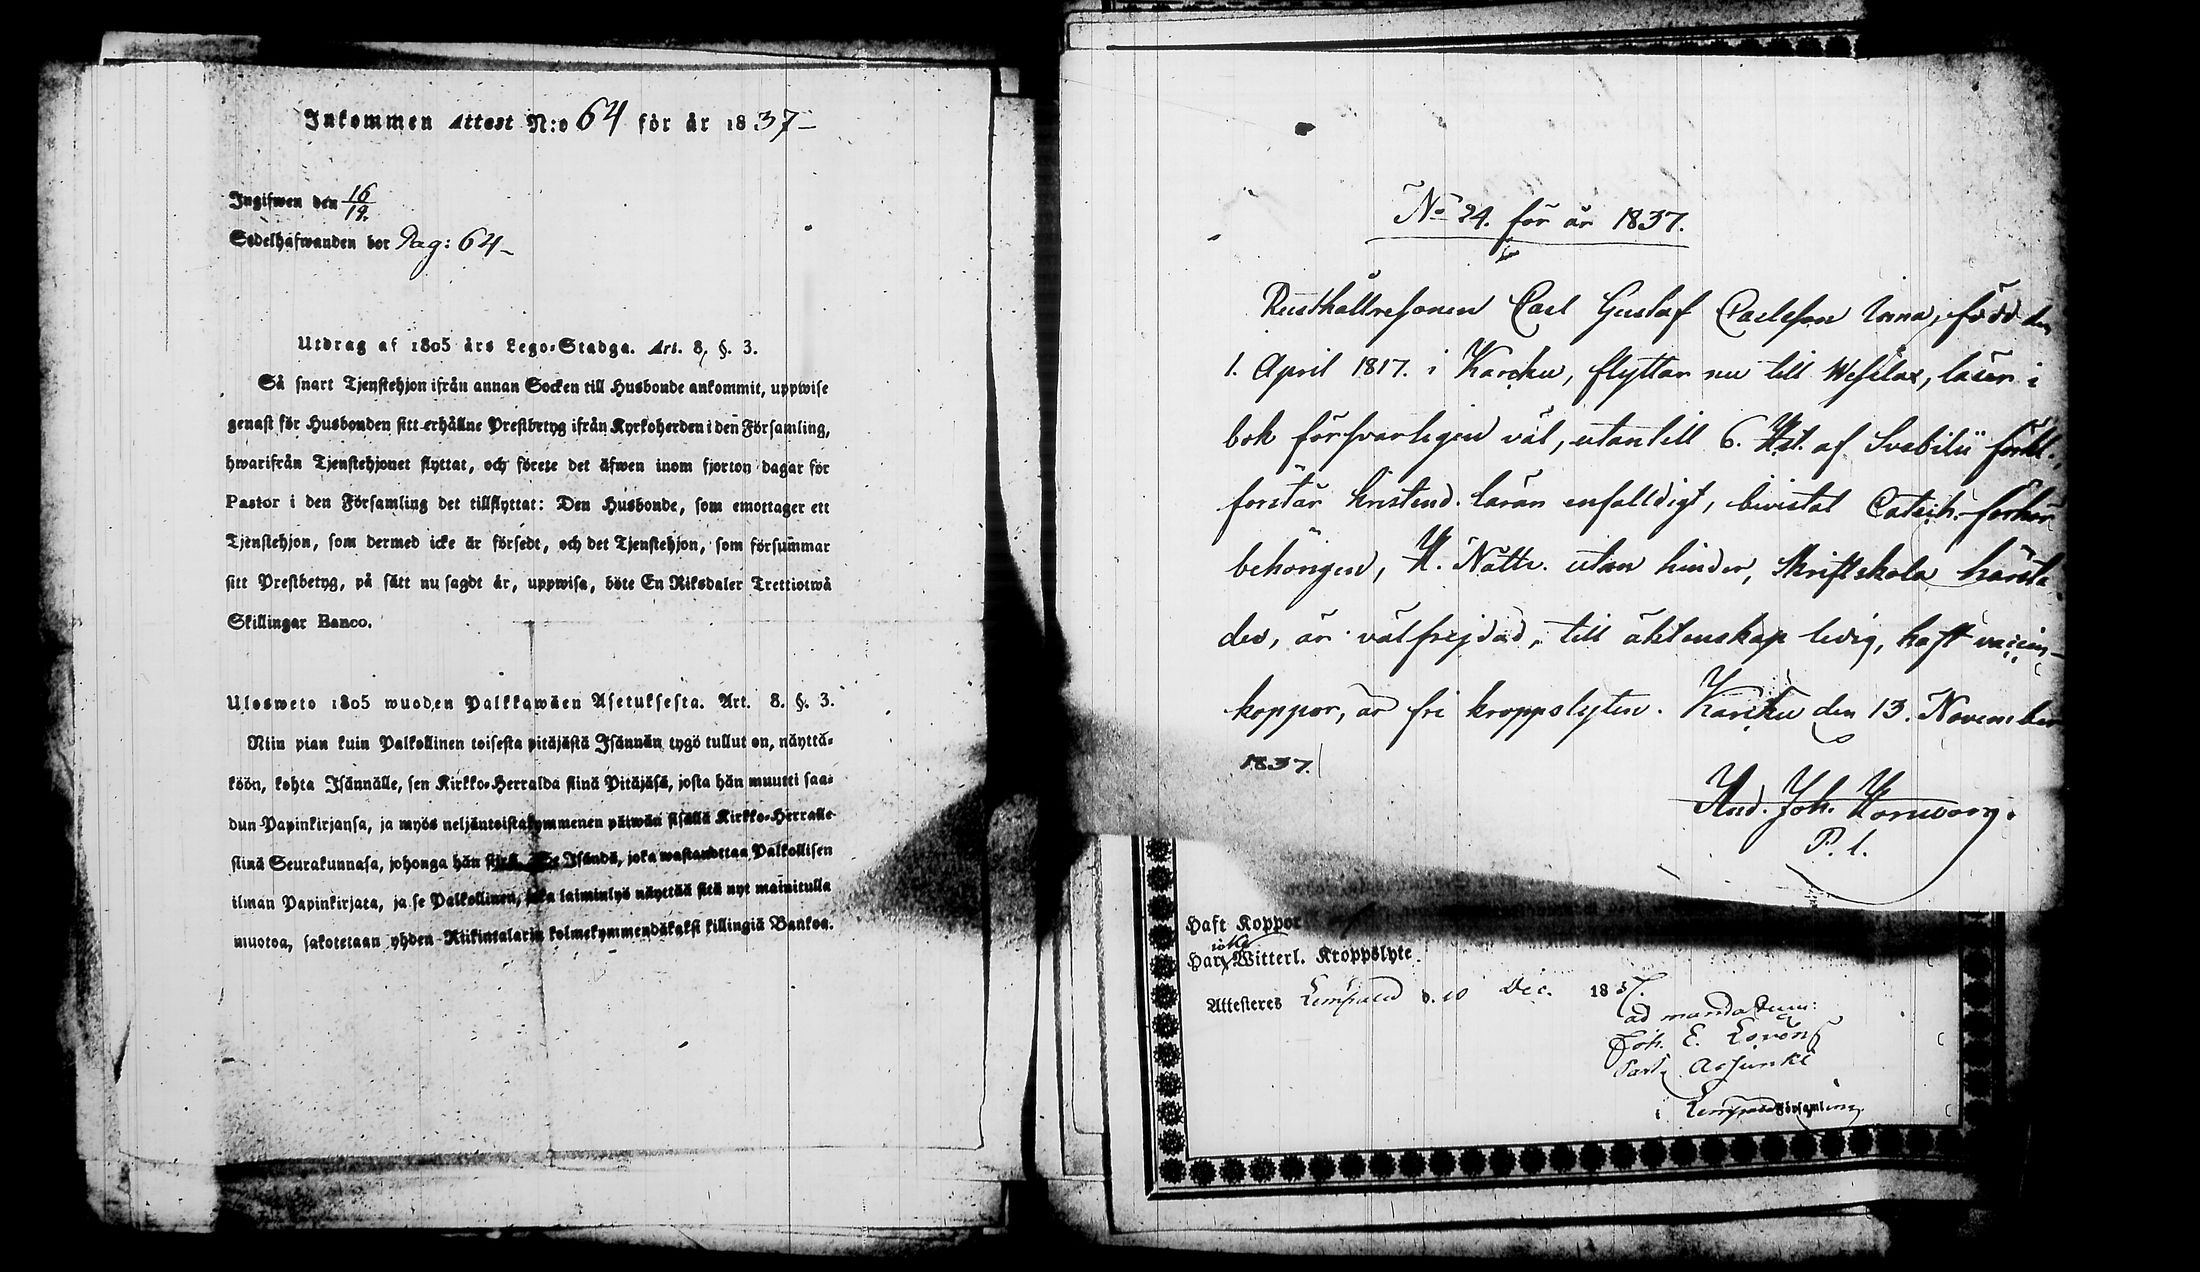 Inkommen Attest N:o 64 för år 1837-
Ingifwen den 16/12.
Sedelhafwanden bor Pag: 64-
Utdrag af 1805 års Lego-Stadga. Art. 8, §. 3.
Så snart Tjenstehjon ifrån annan Socken till Husbonde ankommit, uppwise
genast för Husbonden sitt erhållne Prestbetyg ifrån Kyrkoherden i den Församling,
hwarifrån Tjenstehjonet flyttat, och förete det äfwen inom fjorton dagar för
Pastor i den Församling det tillflyttat: Den Husbonde, som emottager ett
Tjenstehjon, som dermed icke är försedt, och det Tjenstehjon, som försummar
sitt Prestbetyg, på sätt nu sagdt är, uppwisa, böte En Riksdaler Trettiotwå
Skillingar Banco.
Ulosweto 1805 wuoden Palkkawäen Asetuksesta. Art. 8. §. 3.
Niin pian kuin Palkollinen toisesta pitäjästä Isännän tygö tullut on, näyttä-
köön, kohta Isännälle, sen Kirkko-Herralda siinä Pitäjäsä, josta hän muutti saa-
dun Papinkirjansa, ja myös neljäntoistakymmenen päiwän sisällä Kirkko-Herralle
siinä Seurakunnasa, johonga hän Isändä, joka wastaanottaa Palkollisen
ilman Papinkirjata, ja se Palkollinen, joka laiminlyö näyttää sitä nyt mainitulla
muotoa, sakotetaan yhden Riikintalarin kolmekymmendäkaksi killingiä Bankoa.
No 24. för år 1837.
Rusthållaresonen Carl Gustaf Carlsson Unna, född den
1. April 1817. i Karcku, flyttar nu till Wesilax, läser i
bok försvarligen väl, utantill 6. Hst. af Svebilii förkl.,
forstår kristend. läran enfalldigt, bivistat Catech. förhör
behörigen, H. Nattv. utan hinder, Skriftskola härsta-
des, är välfrejdad, till äktenskap ledig, haft vaccin-
koppor, är fri kroppslyten. Karcku den 13. November
1837.
And. Joh. Hornborg.
P. l.
Haft Koppor
Har icke Witterl. Kroppslyte
Attesteres Lempälä d. 10 Dec. 1837.
ad mandatum:
Joh. E. Lovén
Past. Adjunkt
i Lempälä Församling